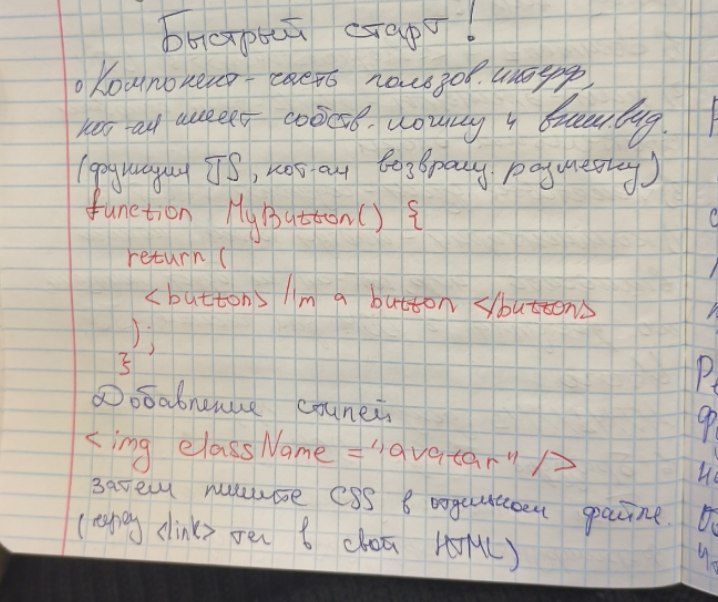 Быстрый старт!
Компонент - часть пользов. интерф,
кот-ая имеет собств. логику и внеш.вид.
(функция JS, кот-ая возвращ. разметку)
function MyButton() {
return (
<button> I'm a button </button>
);
}
Добавление стилей
<img className = "avatar" />
затем пишите CSS в отдельном файле.
(через <link> тег в свой HTML)